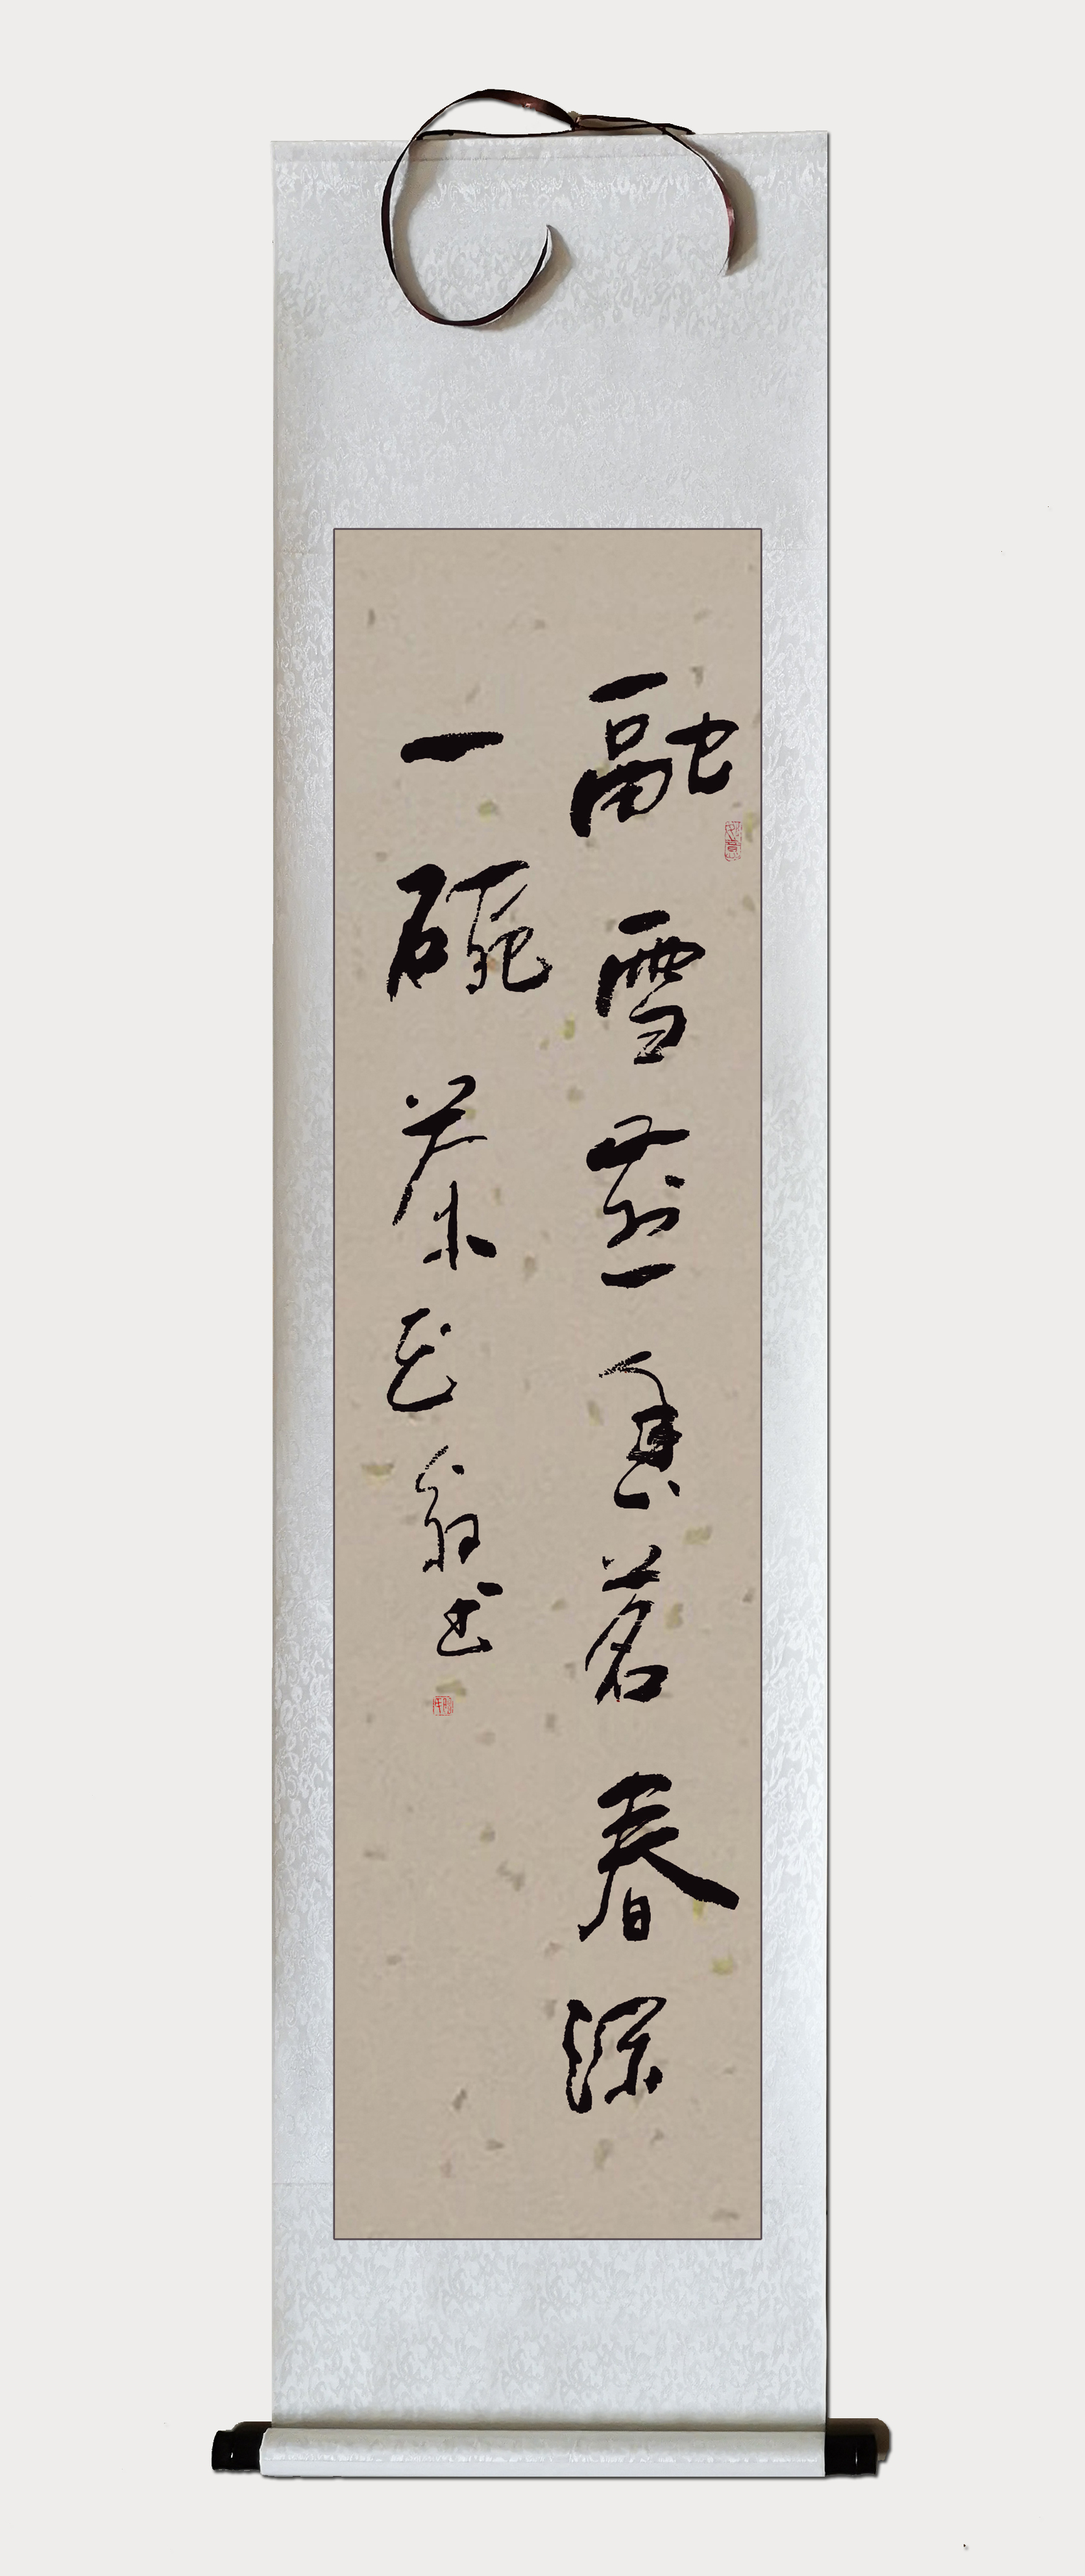 融雪煎香茗春深
一碗茶 翁书